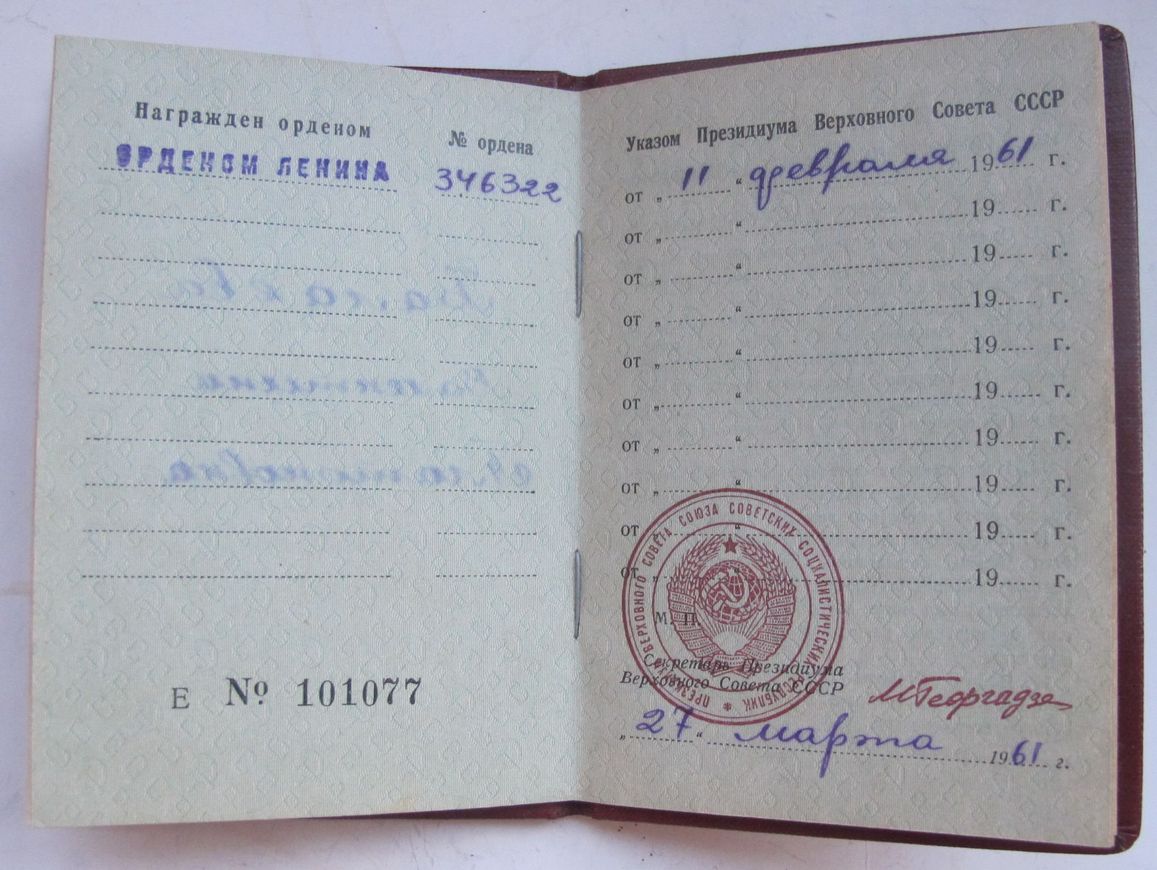 Награжден орденом
№ ордена
ОРДЕНОМ ЛЕНИНА
346322
Е № 101077
Указом Президиума Верховного Совета СССР
от „ 11 “ февраля 1961 г.
от „ “ 19 г.
от „ “ 19 г.
от „ “ 19 г.
от „ “ 19 г.
от „ “ 19 г.
от „ “ 19 г.
от „ “ 19 г.
от „ “ 19 г.
от „ “ 19 г.
ПРЕЗИДИУМ ВЕРХОВНОГО СОВЕТА СОЮЗА СОВЕТСКИХ СОЦИАЛИСТИЧЕСКИХ РЕСПУБЛИК
М. П.
Секретарь Президиума
Верховного Совета СССР
МГеоргадзе
„ 27 “ марта 1961 г.